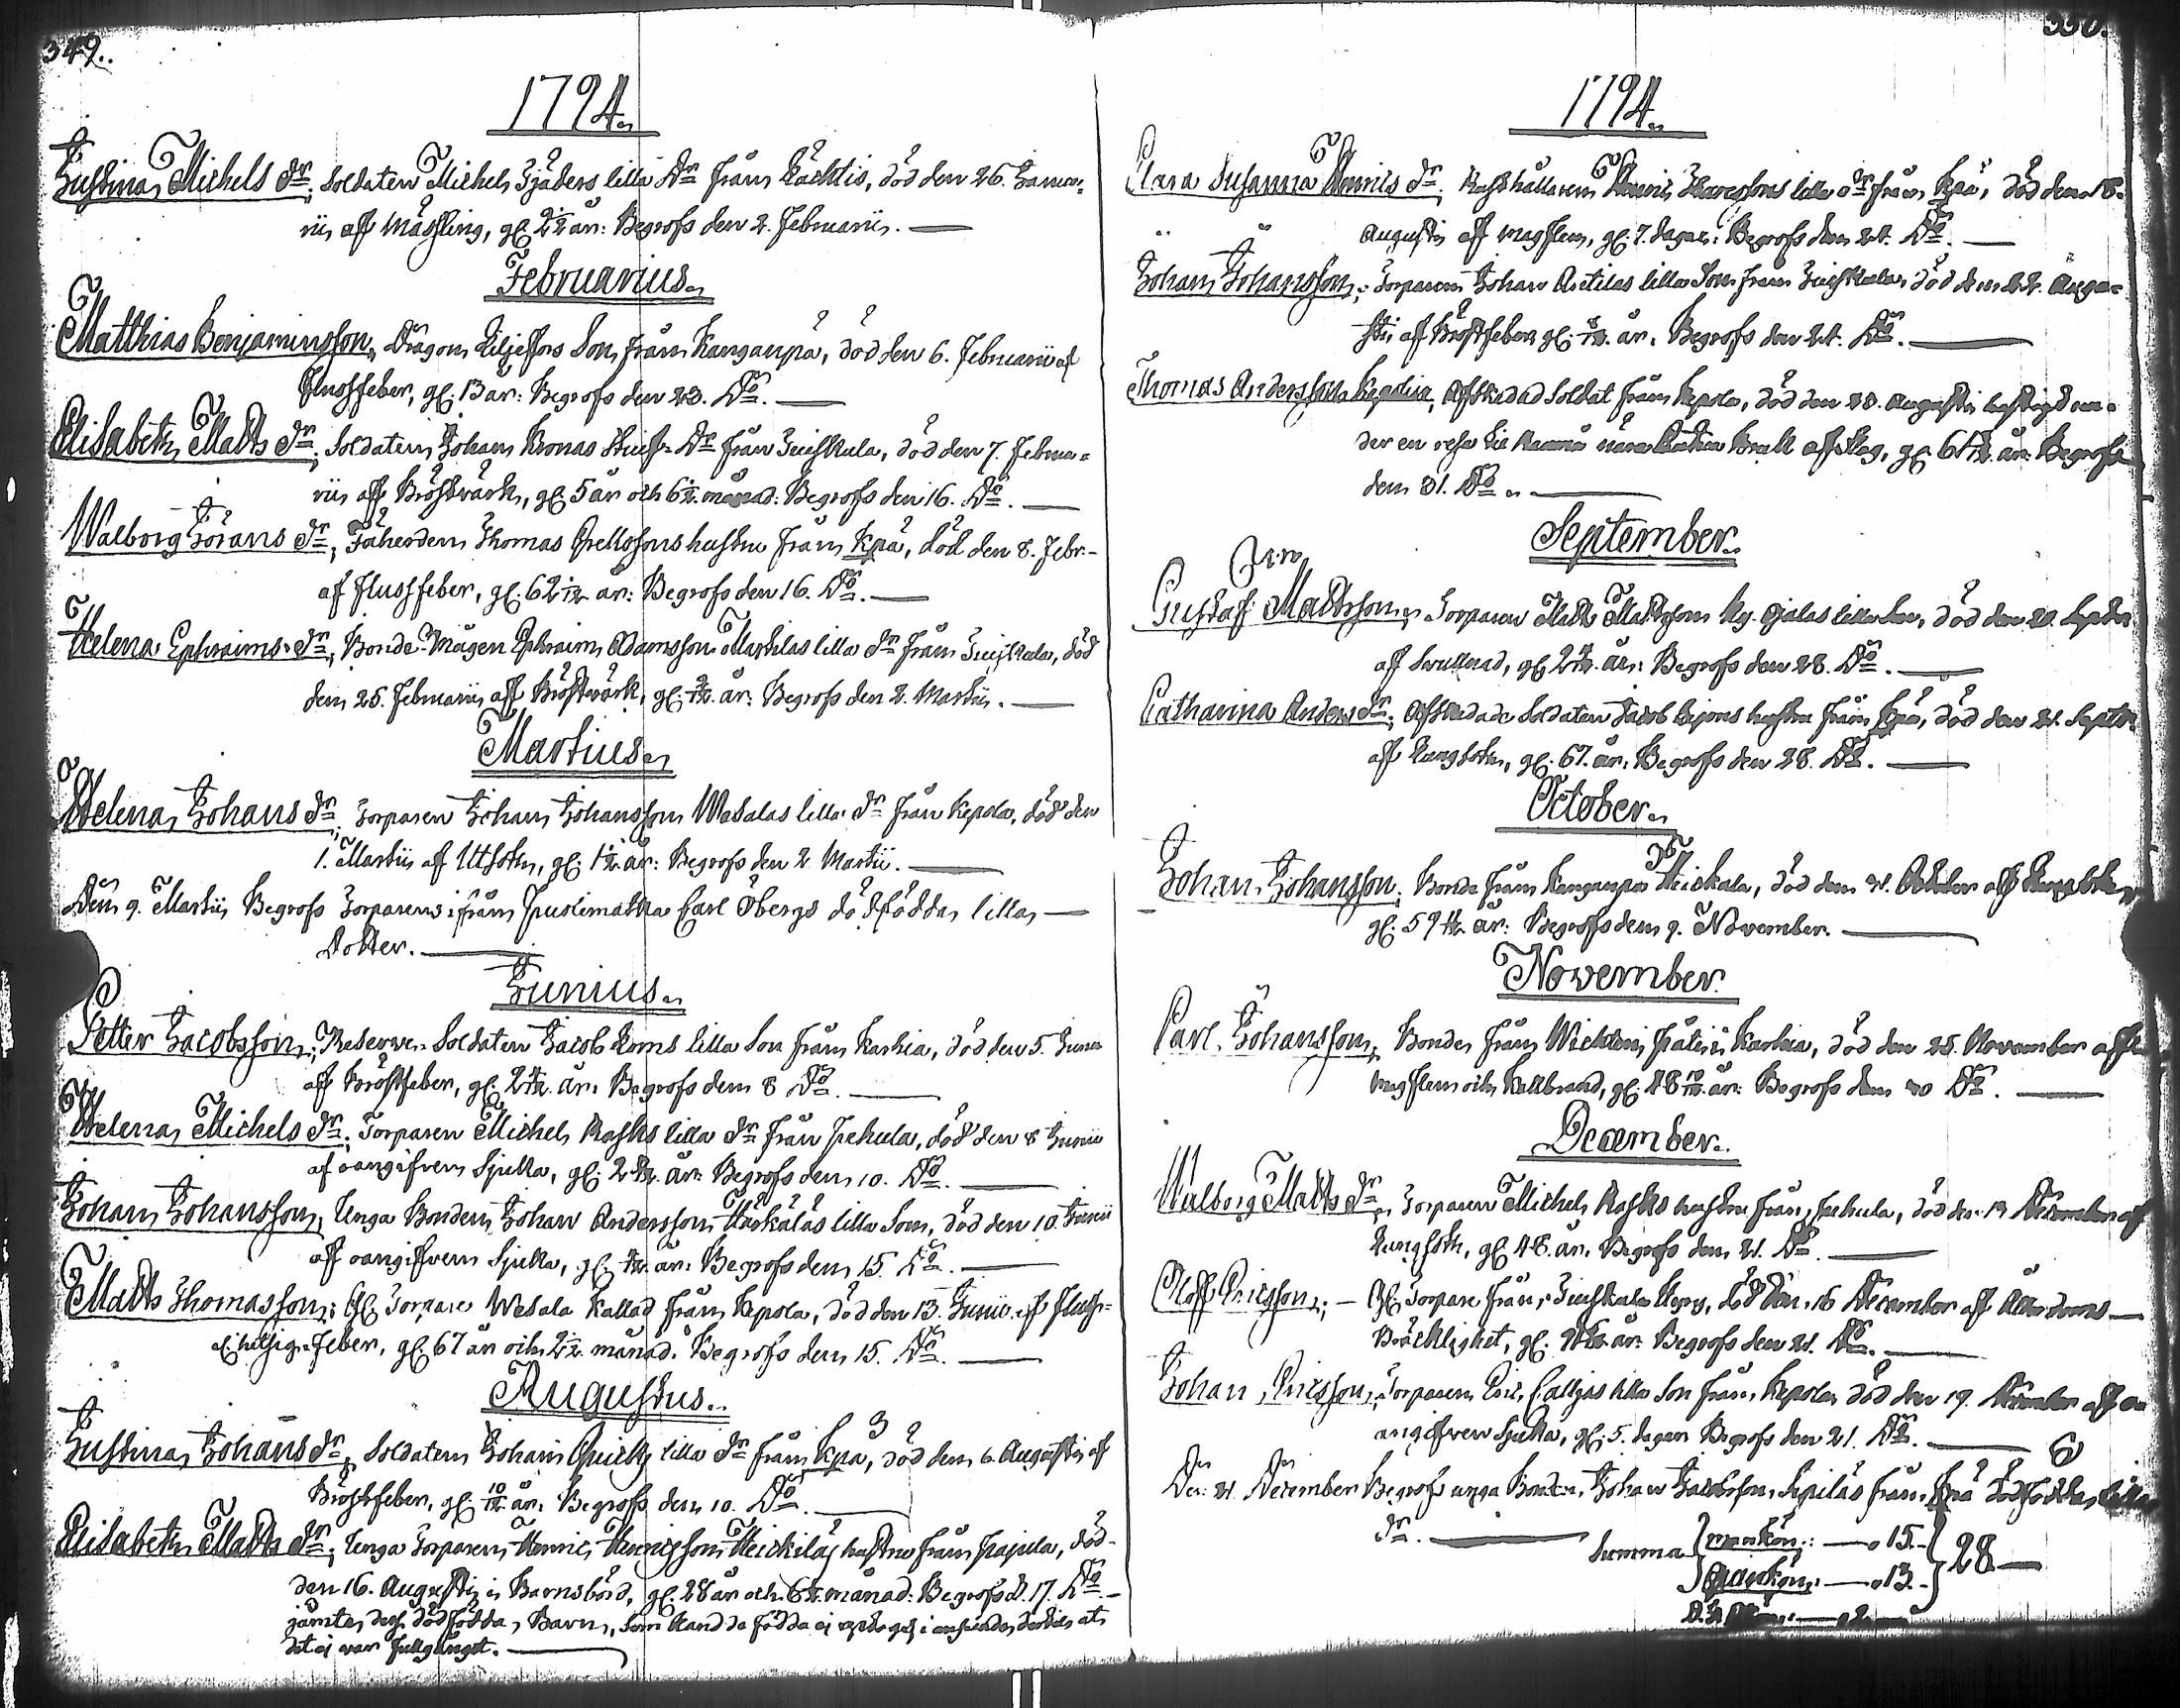 349.
1794.
Justina Michels dr, Soldaten Michel Sjäders lilla Dr från Kächtis, död den 26. Janua-
rii aff Mässling, gl. 2 1/2 år: Begrofs den 2. Februarii.
Februarius
Matthias Benjaminsson, Dragon Liljefors Son från Kangaupä, död den 6. Februarii af
Flussfeber, gl. 13 år: Begrofs den 23. Do.
Elisabeth Matts dr, Soldaten Johan Kronas Stief-Dr från Suiskula, död den 7. Februa-
rii aff Bröstvärk, gl. 5 år och 6 månad: Begrofs den 16. Do.
Walborg Görans dr, Fäherden Thomas hustru från Kpä, död den 8. Febr.
af Flussfeber, gl. 62 år: Begrofs den 16. Do.
Helena Ephraims dr, Bonde-Mågen Ephraim Adamsson Markilas lilla dr från Suiskula, död
den 25. Februarii aff Bröstvärk, gl. år: Begrofs den 2. Martii.
Martius
Helena Johans dr, Torparen Johan Johansson Wesalas lilla dr från Kepola, död den
1. Martii af Uttsoten, gl. 1 år: Begrofs den 2 Martii.
Den 9. Martii Begrofs Torparens ifrån Carl Öbergs dödfödda lilla
Dotter.
Junius
Petter Jacobsson, Reserve-Soldaten Jacob Roms lilla Son från Karhia, död den 5. Junii
aff Bröstfeber, gl. 2 år: Begrofs den 8 Do.
Helena Michels dr, Torparen Michel Rasks lilla dr från Jrekula, död den 8 Junii
af oangifven Sjukka, gl. 2 år: Begrofs den 10. Do.
Johan Johansson, Unga Bonden Johan Andersson lilla Son, död den 10. Junii
aff oangifven Sjukka, gl. år: Begrofs den 15. Do.
Matts Thomasson, Gl. Torpare Wesala kallad från Kepola, död den 13. Junii af Fluss-
Feber, gl. 67 år och 2 månad: Begrofs den 15. Do.
Augustus
Justina Johans dr, Soldaten Johan Quicks lilla dr från Kpä, död den 6. Augusti af
Bröstfeber, gl. 10/12 år: Begrofs den 10. Do.
Elisabeth Matts dr, Unga Torparen Henric Henricsson Heickiläs hustru från Pajula, död
den 16. Augusti i Barnsbörd, gl. 28 år och 6 månad: Begrofs d. 17. Do.
jämte dess dödfödda Barn, som
det ej war fullgånget.
1794.
Clara Susanna Henrics dr, Rusthållaren Henric lilla dr från Kpä, död den 18.
Augusti aff magflen, gl. 7. dagar: Begrofs den 24. Do.
Johan Johansson, Torparen Johan Antilas lilla Son från Suiskula, död den 22. Augu-
sti af Bröstfeber gl. år: Begrofs den 24. Do.
Thomas Andersson Kepolin, Afskedad Soldat från Kepola, död den 28. Augusti hastigt un-
der en resa til nära af slag, gl. 61 år: Begrofs
den 31. Do.
September
Gustaf Mattsson, Torparen Matts Mattsson Ny-Ojalas lilla Son, död den 20. Septbr
aff Swullnad, gl. 2 år: Begrofs den 28. Do.
Catharina Anders dr, Afskedade Soldaten Jacob hustru från Kpä, död den 21. Septbr
aff Lungsoten, gl. 67. år: Begrofs den 28. Do.
October
Johan Johansson, Bonde från Kangaupä Heickala, död den 31. October aff
gl. 59 år: Begrofs den 9. November.
November
Carl Johansson, Bonde från i Karhia, död den 25. November aff
magflen och Kallbrand, gl. 48 10/12 år: Begrofs den 30 Do.
December
Walborg Matts dr, Torparen Michel Rasks hustru från Jrekula, död den 13 December af
Lungsoth, gl. 48. år: Begrofs den 21. Do.
Oloff Ericsson, Gl. Torpare från Suiskula, död den 16 December aff Ålderdoms-
Bräcklighet, gl. år: Begrofs den 21. Do.
Johan Ericsson, Torparen Eric lilla Son från Kepola, död den 19. December aff o-
angifven Sjukka, gl. 5. dagar: Begrofs den 21. Do.
Den 21. December Begrofs unga Bonden Johan Jacobsson Sepiläs från Kpä dödfödda lilla
dr.
Summa mankön: 15. 28
qwinkön: 13.